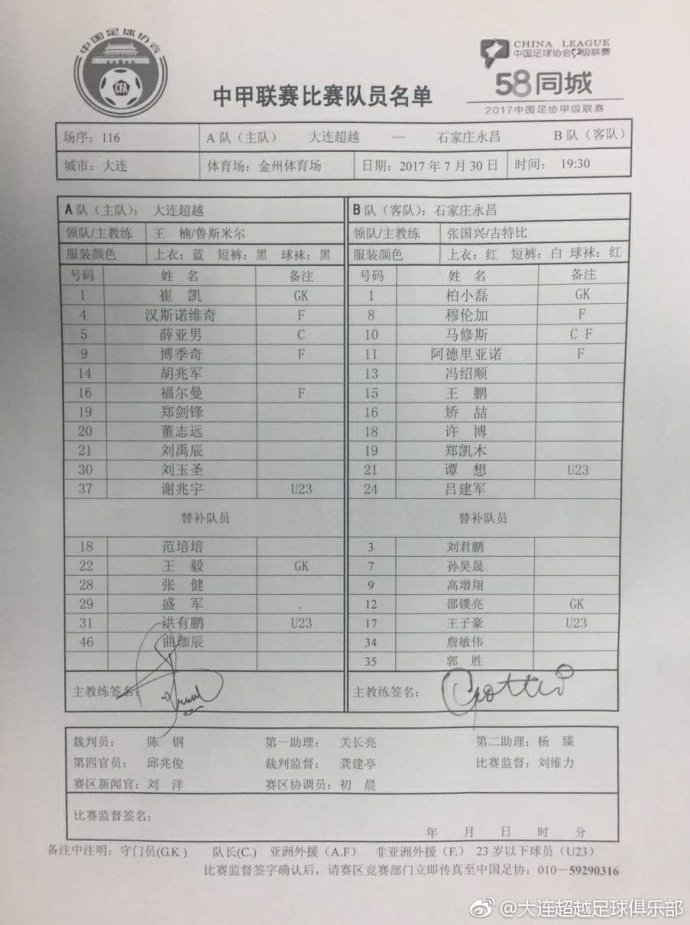 中国足球协会
CFA
CHINA LEAGUE
中国足球协会 级联赛
58同城
2017中国足协甲级联赛
中甲联赛比赛队员名单
场序：116 A 队（主队） 大连超越 — 石家庄永昌 B 队（客队）
城市：大连 体育场：金州体育场 日期：2017 年 7 月 30 日 时间： 19:30
A 队（主队）： 大连超越 B 队（客队）：石家庄永昌
领队/主教练 王 楠/鲁斯米尔 领队/主教练 张国兴/古特比
服装颜色 上衣：蓝 短裤：黑 球袜：黑 服装颜色 上衣：红 短裤：白 球袜：红
号码 姓 名 备注 号码 姓 名 备注
1 崔 凯 GK 1 柏小磊 GK
4 汉斯诺维奇 F 8 穆伦加 F
5 薛亚男 C 10 马修斯 C F
9 博季奇 F 11 阿德里亚诺 F
14 胡兆军 13 冯绍顺
16 福尔曼 F 15 王 鹏
19 郑剑锋 16 矫 喆
20 董志远 18 许 博
21 刘禹辰 19 郑凯木
30 刘玉圣 21 谭 想 U23
37 谢兆宇 U23 24 吕建军
替补队员 替补队员
18 范培培 3 刘君鹏
22 王 毅 GK 7 孙昊晟
28 张 健 9 高增翔
29 盛 军 12 邵镤亮 GK
31 洪有鹏 U23 17 王子豪 U23
46 曲珈辰 34 詹敏伟
35 郭 胜
主教练签名： 主教练签名：
裁判员： 陈 钢 第一助理： 关长亮 第二助理：杨 臻
第四官员： 邱兆俊 裁判监督： 龚建亭 比赛监督：刘维力
赛区新闻官：刘 洋 赛区协调员：初 晨
比赛监督签名：
年 月 日 时 分
备注中注明：守门员(G.K ) 队长(C.) 亚洲外援（A.F） 非亚洲外援（F.） 23 岁以下球员（U23）
比赛监督签字确认后，请赛区竞赛部门立即传真至中国足协：010—59290316
@大连超越足球俱乐部